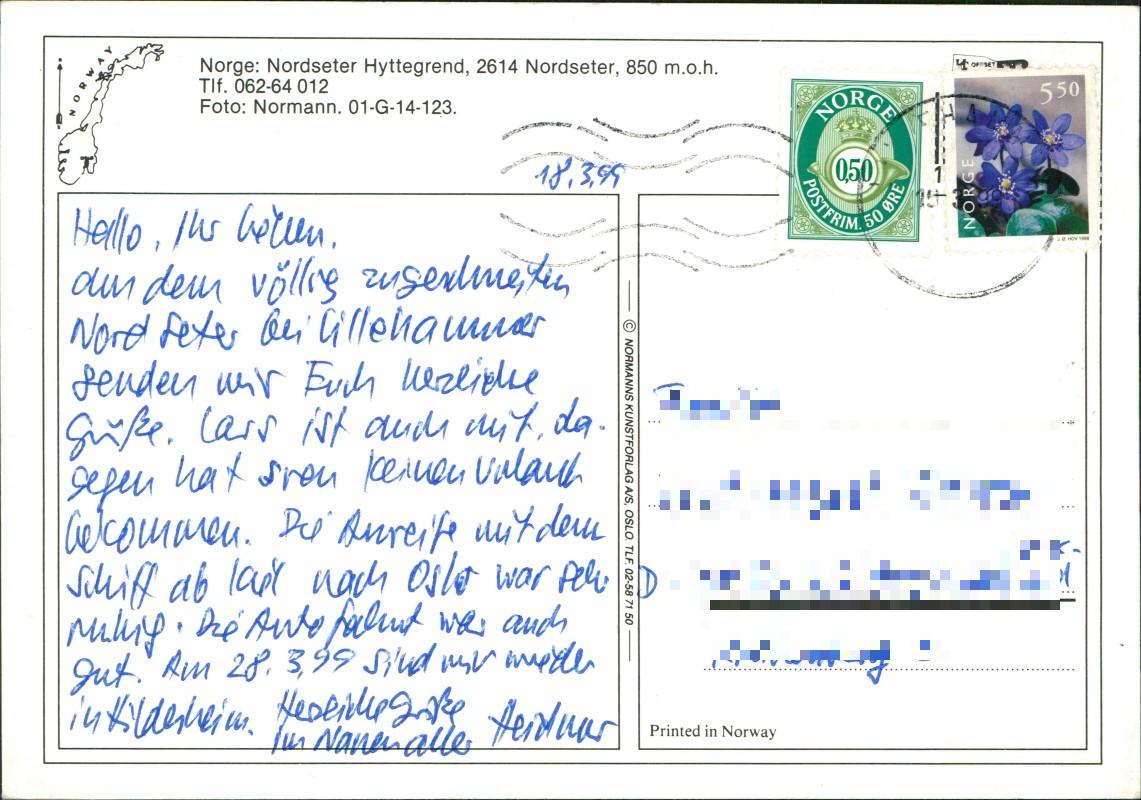 NORWAY
Norge: Nordseter Hyttegrend, 2614 Nordseter, 850 m.o.h.
Tlf. 062-64 012
Foto: Normann. 01-G-14-123.
OFFSET
NORGE
0,50
POSTFRIM. 50 ØRE
5 50
NORGE
18.3.99
Hallo, Ihr Lieben,
aus dem völlig zugeschneiten
Nordseter bei Lillehammer
senden wir Euch herzliche
Grüße. Lars ist auch mit, da-
gegen hat Sven keinen Urlaub
bekommen. Die Anreise mit dem
Schiff ab Kiel nach Oslo war sehr
ruhig. Die Autofahrt war auch
gut. Am 28.3.99 sind wir wieder
in Hildesheim. Herzliche Grüße
Im Namen aller
© NORMANNS KUNSTFORLAG A/S, OSLO. TLF. 02-58 71 50
D
Printed in Norway